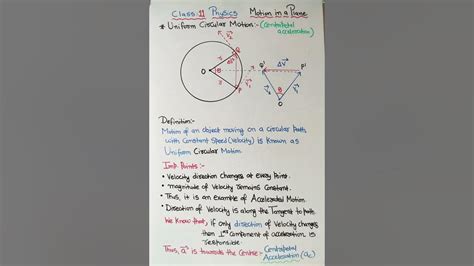 Class:-11 Physics Motion in a Plane
* Uniform Circular Motion:- (Centripetal acceleration)
Q' ΔV P'
O θ
θ
O
Definition:-
Motion of an object moving on a Circular Path
with Constant Speed (Velocity) is Known as
Uniform Circular Motion.
Imp. Points:-
• Velocity direction changes at every Point.
• magnitude of Velocity remains Constant.
• Thus, it is an example of Accelerated Motion
• Direction of Velocity is along the Tangent to path.
We Know that, if only direction of Velocity changes
then 1st component of acceleration is
responsible.
Thus, a⃗ is towards the Centre:- Centripetal
Acceleration (ac)